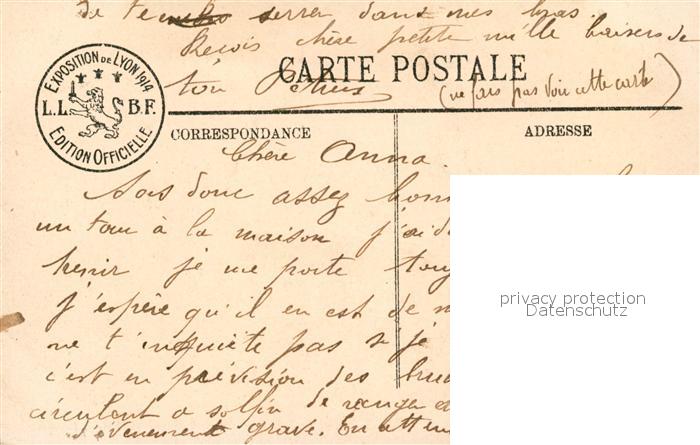 de t
serrer dans mes bras.
Reçois chère petite mille baisers de
ton
CARTE POSTALE
(ne fais pas voir cette carte)
EXPOSITION DE LYON 1914
L.L. B.F.
EDITION OFFICIELLE
CORRESPONDANCE
ADRESSE
Chère Anna.
Sois donc assez bonn
un tour à la maison j'ai d
venir je me porte touj
j'espère qu'il en est de m
ne t'inquiète pas si je
c'est en prévision des brui
circulent a
d'évènement grave. En atten
privacy protection
Datenschutz